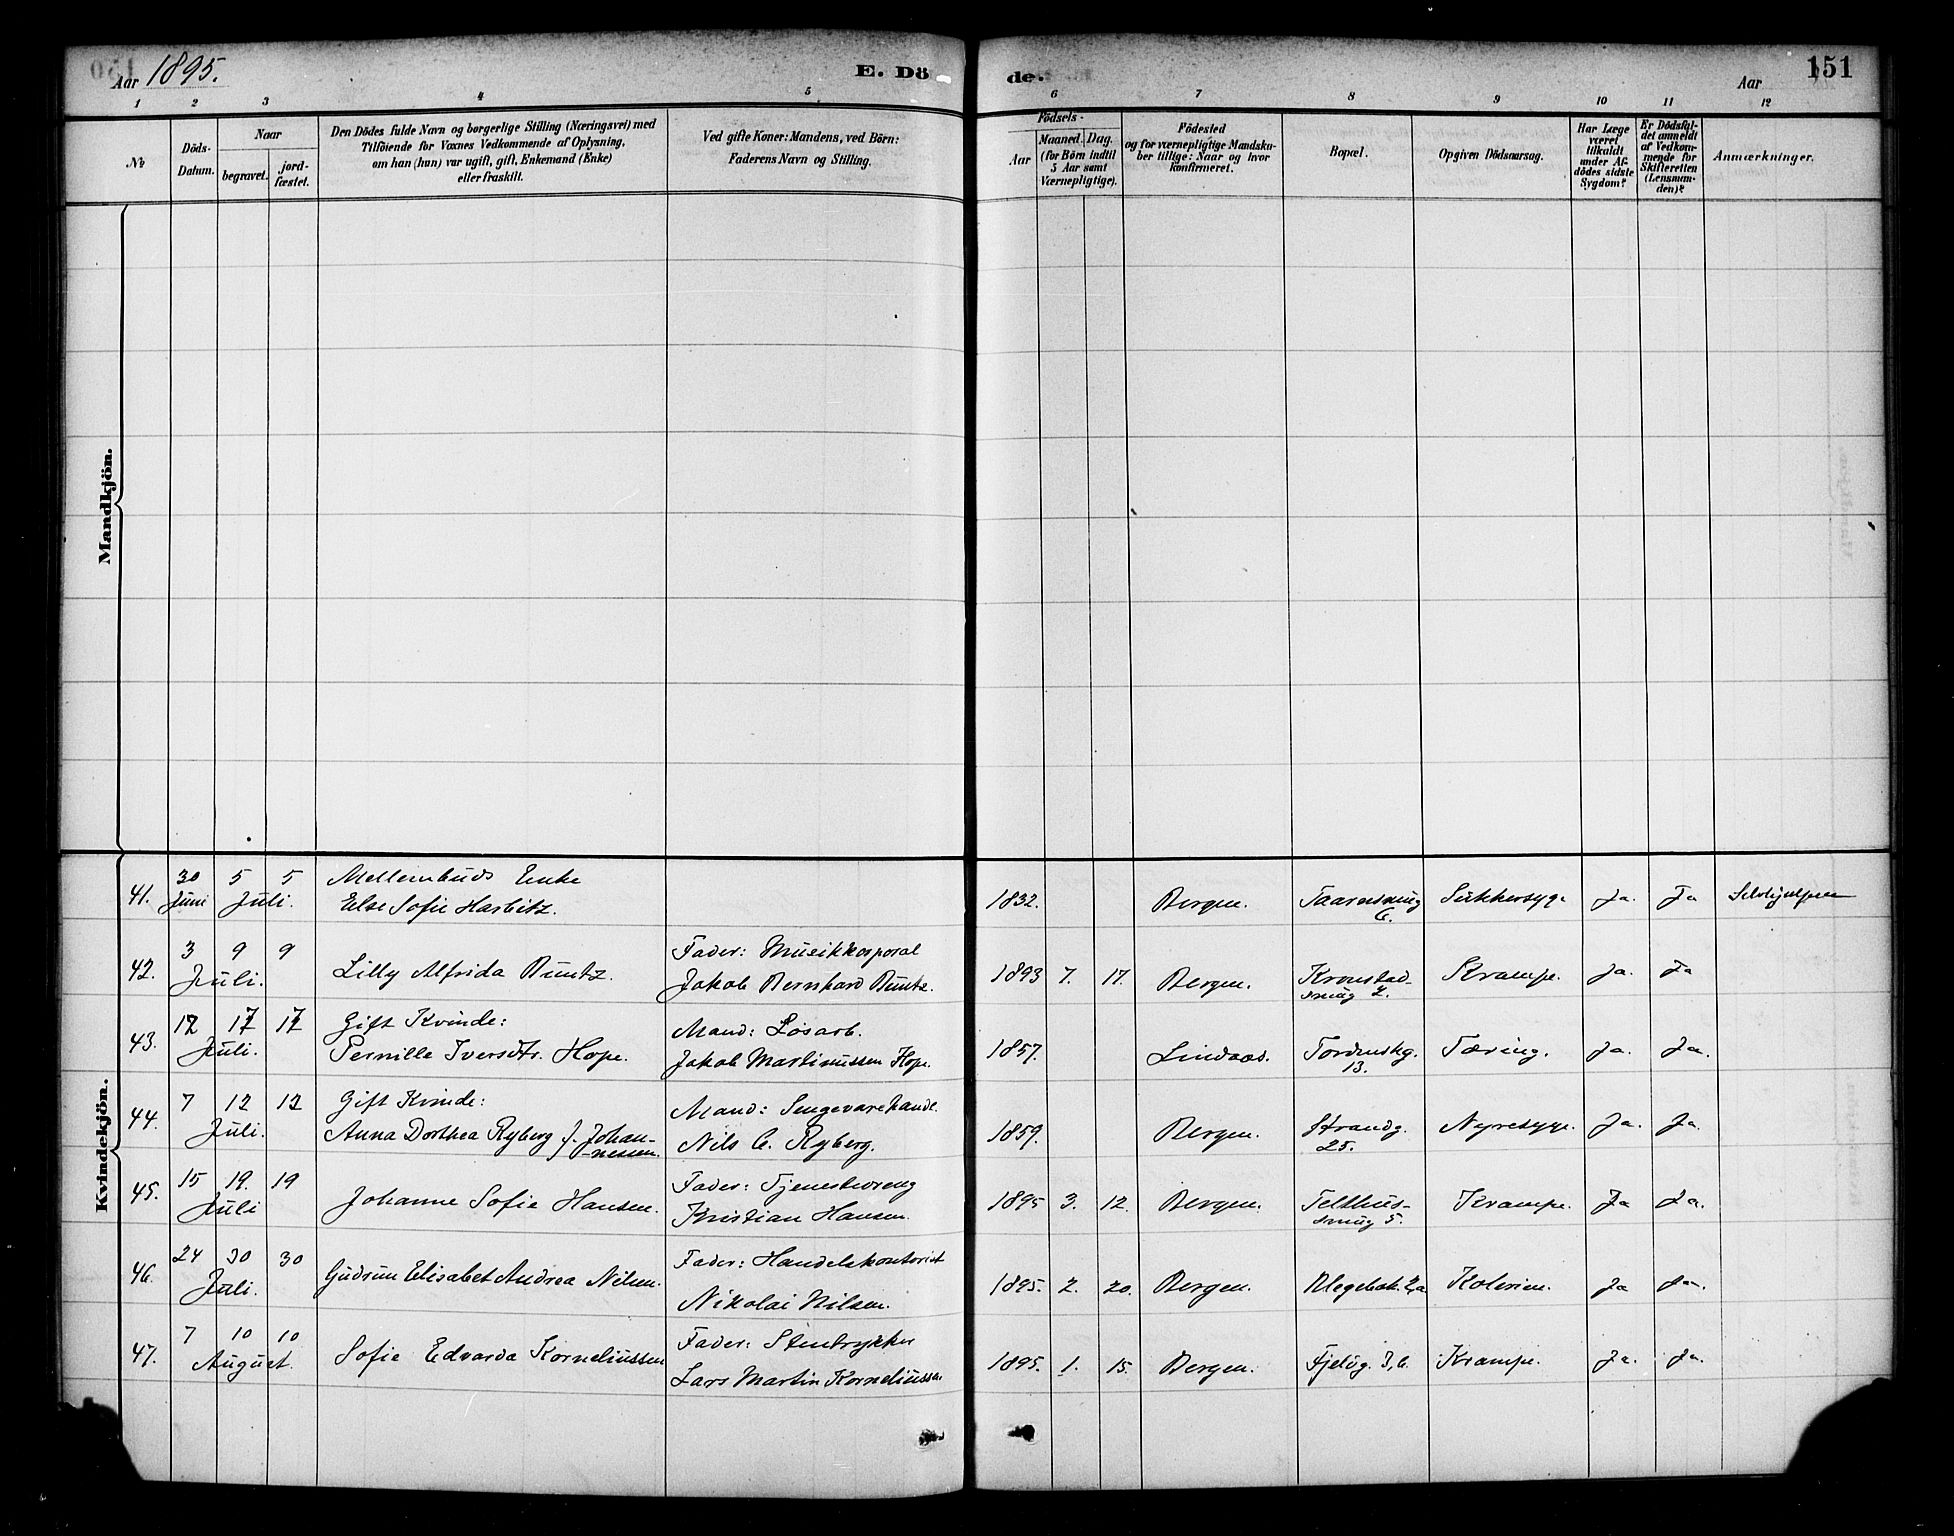 Aar 1895.
E. Döde.
Aar
151
1 2 3 4 5 6 7 8 9 10 11 12
No
Döds-Datum.
Naar
begravet. jordfæstet.
Den Dödes fulde Navn og borgerlige Stilling (Næringsvei) med
Tilföiende for Voxnes Vedkommende af Oplysning,
om han (hun) var ugift, gift, Enkemand (Enke)
eller fraskilt.
Ved gifte Koner: Mandens, ved Börn:
Faderens Navn og Stilling.
Födsels-
Aar
Maaned. Dag.
(for Börn indtil
5 Aar samt
Værnepligtige).
Födested
og for værnepligtige Mandsku-
ber tillige: Naar og hvor
konfirmeret.
Bopæl.
Opgiven Dödsaarsag.
Har Læge
været
tilkaldt
under Af-
dödes sidste
Sygdom?
Er Dödsfal-
det anmeldt
af Vedkom-
mende for
Skifteretten
(Lensman-
den)?
Anmærkninger.
Mandkjön.
Kvindekjön.
41. 30 Juni 5 5 Juli. Mellembuds Enke
Else Sofie Harbitz. 1832. Bergen. 6. Sukkersyge Ja. Ja
42. 3 9 9 Juli. Lilly Alfrida Buntz. Fader: Musikkorporal
Jakob Bernhard Buntz. 1893 7. 17. Bergen. Kronstad-
smug 2. Krampe. Ja. Ja
43. 12 17 17 Juli. Gift Kvinde:
Pernille Iversdtr. Hope. Mand: Løsarb.
Jakob Martinussen Hope. 1857. Lindaas. Tordenskg.
13. Tæring. Ja. Ja.
44. 7 12 12 Juli. Gift Kvinde:
Anna Dorthea Ryberg f. Johan-
nessen. Mand: Sengevarehandl.
Nils C. Ryberg. 1859. Bergen. Strandg.
25. Nyresyge. Ja. Ja.
45. 15 19. 19 Juli Johanne Sofie Hansen. Fader: Tjenestedreng
Kristian Hansen. 1895 3. 12. Bergen. Telthus-
smug 5. Krampe. Ja Ja.
46. 24 30 30 Juli. Gudrun Elisabet Andrea Nilsen. Fader: Handelskontorist
Nikolai Nilsen. 1895. 2. 20. Bergen. Kolerine. Ja Ja.
47. 7 10 10 August. Sofie Edvarda Korneliussen Fader: Stentrykker
Lars Martin Korneliussen 1895. 1. 15. Bergen. Fjeldg. 3,b. Krampe. Ja. Ja.